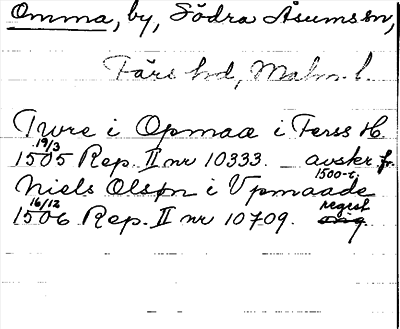 Omma, by, Södra Åsums sn,
Färs hd, Malm. l.
Twre i Opmaa i Ferss H.
19/3
1505 Rep. II nr 10333. avskr. fr.
1500-t.
Niels Olspn i Vpmaade
16/12 regest
1506 Rep. II nr 10709. orig.